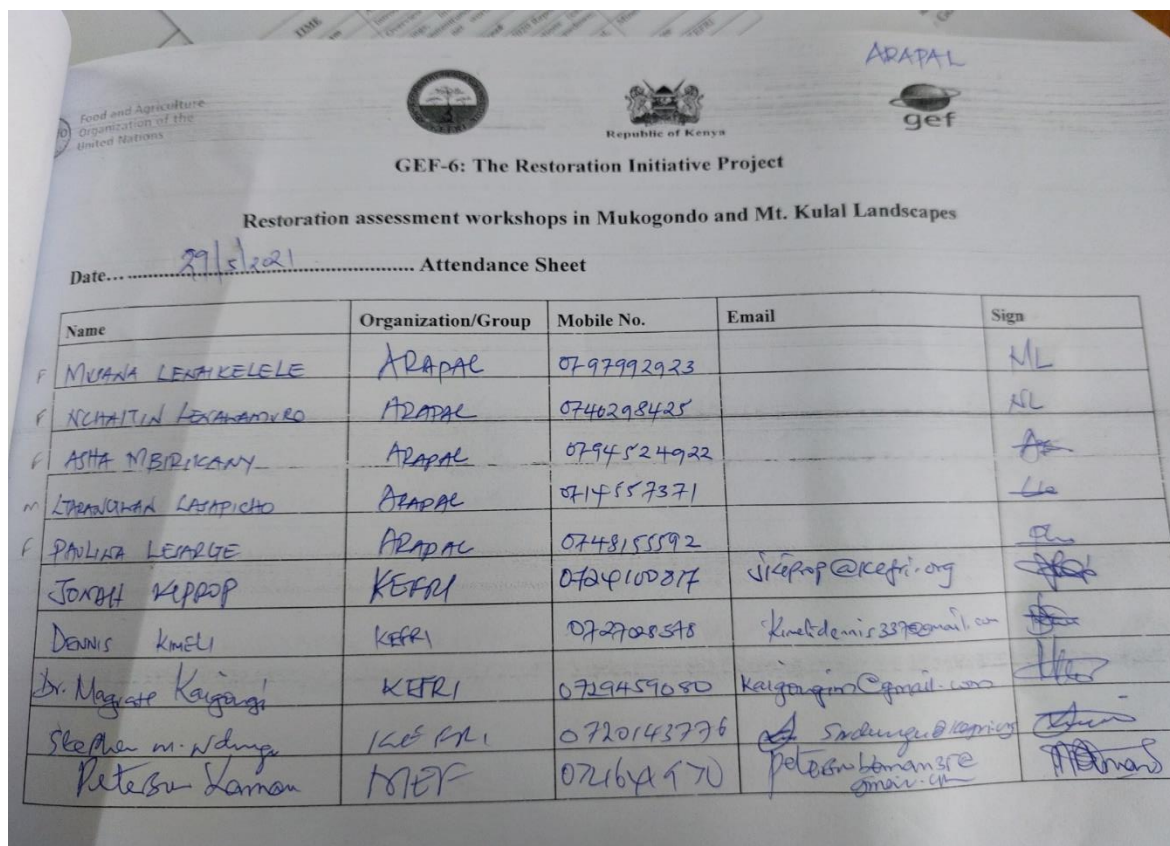 TIME
ARAPAL
Food and Agriculture
Organization of the
United Nations
Republic of Kenya
gef
GEF-6: The Restoration Initiative Project
Restoration assessment workshops in Mukogondo and Mt. Kulal Landscapes
Date... 29/5/2021 Attendance Sheet
Name Organization/Group Mobile No. Email Sign
F MUSANA LENAIKELELE ARAPAL 0797992923 ML
F NCHAITIN ARAPAL 0746298425 NL
F ASHA MBIRIKANY ARAPAL 0794524922
M LASAPICHO ARAPAL 0714557371
F PAULINA LESARGE ARAPAL 0748155592
JONAH KIPROP KEFRI 0724100817 jkiprop@kefri.org
DENNIS KIMELI KEFRI 0727028578 Kimelidennis337@gmail.com
Dr. Magrate Kaigongi KEFRI 0729459080 kaigongim@gmail.com
Stephen M. Ndungu KEFRI 0720143776
Peterson Kamau MEF